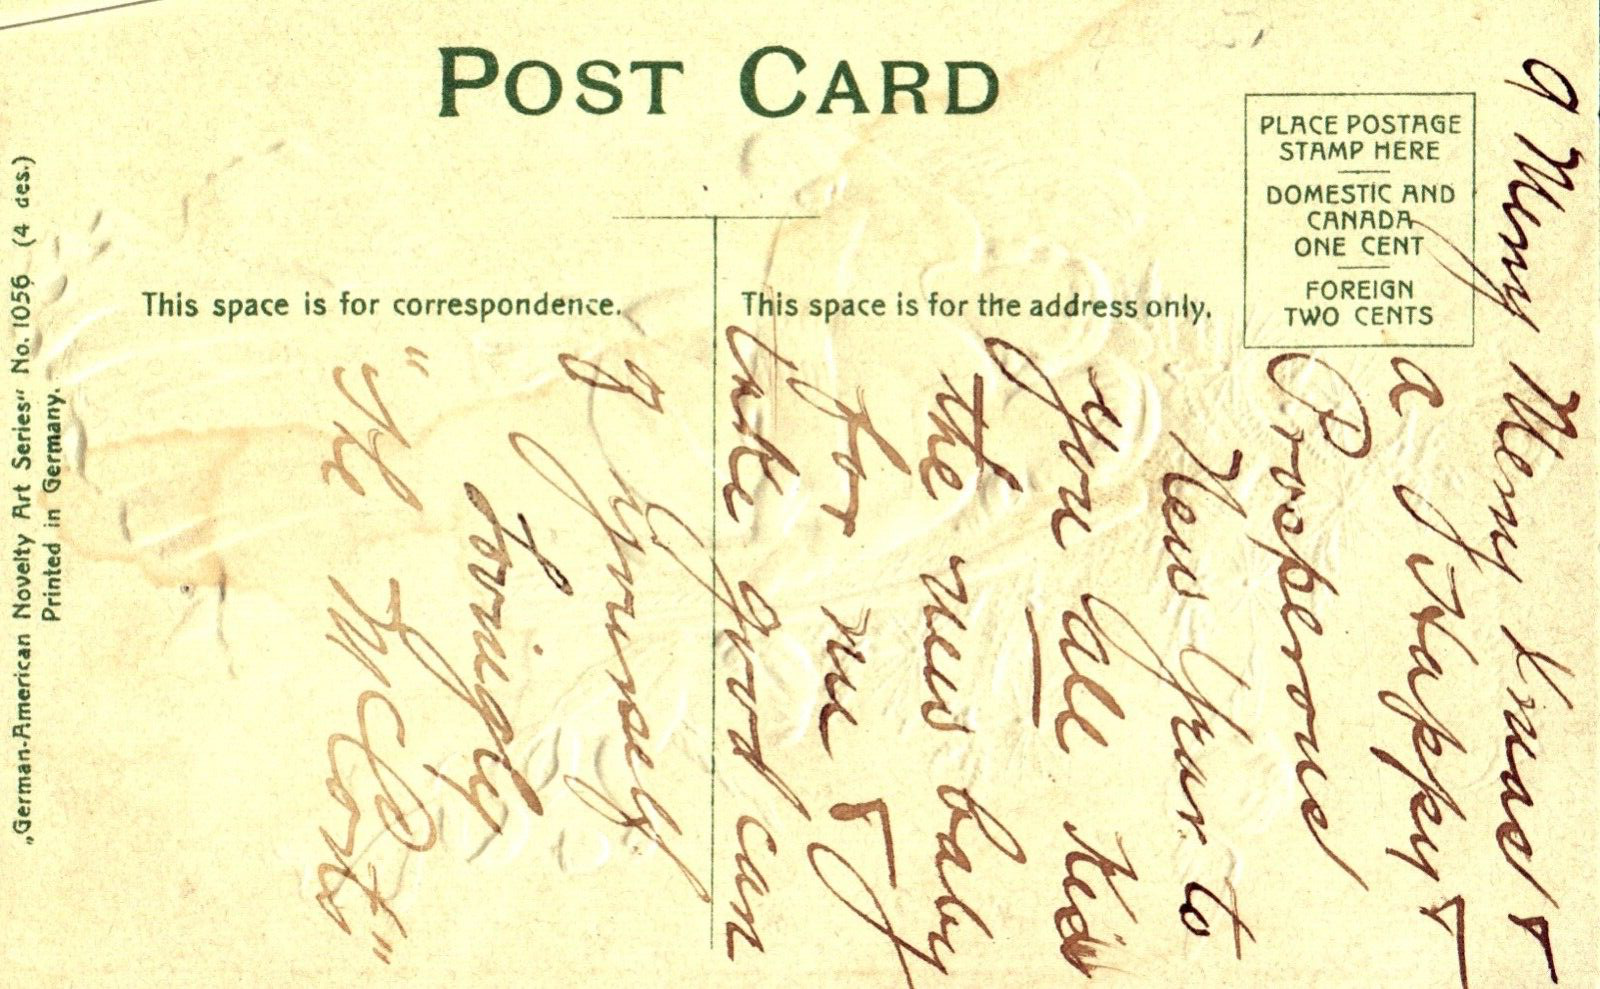 POST CARD
PLACE POSTAGE
STAMP HERE
DOMESTIC AND
CANADA
ONE CENT
FOREIGN
TWO CENTS
This space is for correspondence.
This space is for the address only.
„German-American Novelty Art Series" No. 1056 (4 des.)
Printed in Germany.
a Merry Merry Xmas &
a Happy &
Prosperous
New Year to
You all Kiss
the new baby
for me &
take good care
of yourself
Lovingly
"The